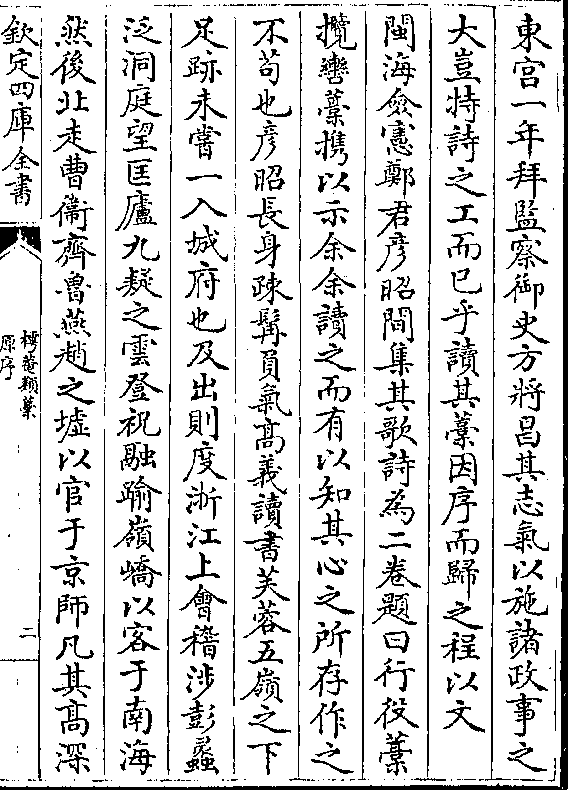 東宫一年拜監察御史方將昌其志氣以施諸政事之
大豈特詩之工而已乎讀其藁因序而歸之程以文
閩海僉憲鄭君彦昭間集其歌詩為二卷題曰行役藁
攬轡藁携以示余余讀之而有以知其心之所存作之
不苟也彦昭長身疎髯負氣髙義讀書芙蓉五嶺之下
足跡未嘗一入城府也及出則度浙江上會稽涉彭蠡
泛洞庭望匡廬九疑之雲登祝融踰嶺嶠以客于南海
然後北走曹衞齊魯燕趙之墟以官于京師凡其髙深
欽定四庫全書
樗菴類藁
原序
二